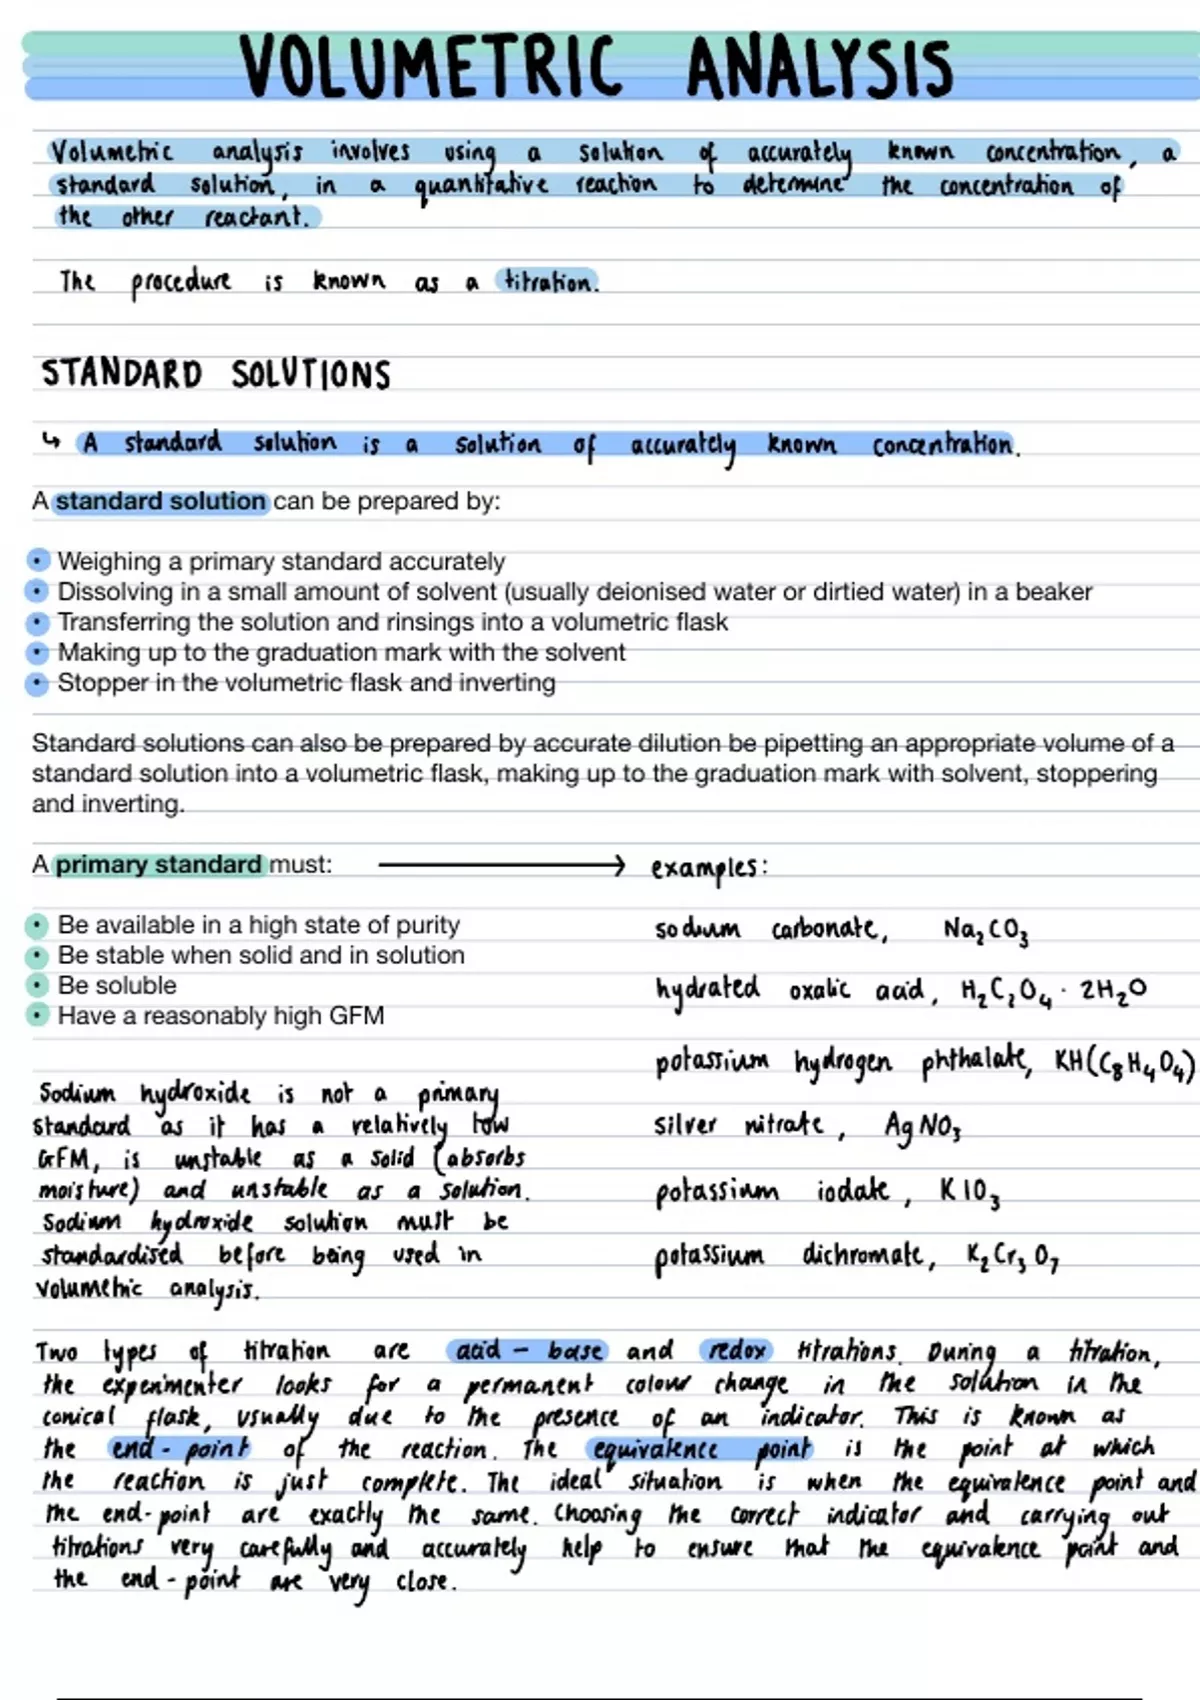 VOLUMETRIC ANALYSIS
Volumetric analysis involves using a solution of accurately known concentration, a
standard solution, in a quantitative reaction to determine the concentration of
the other reactant.
The procedure is known as a titration.
STANDARD SOLUTIONS
↳ A standard solution is a solution of accurately known concentration.
A standard solution can be prepared by:
• Weighing a primary standard accurately
• Dissolving in a small amount of solvent (usually deionised water or dirtied water) in a beaker
• Transferring the solution and rinsings into a volumetric flask
• Making up to the graduation mark with the solvent
• Stopper in the volumetric flask and inverting
Standard solutions can also be prepared by accurate dilution be pipetting an appropriate volume of a
standard solution into a volumetric flask, making up to the graduation mark with solvent, stoppering
and inverting.
A primary standard must: → examples:
• Be available in a high state of purity
• Be stable when solid and in solution
• Be soluble
• Have a reasonably high GFM
sodium carbonate, Na₂CO₃
hydrated oxalic acid, H₂C₂O₄ · 2H₂O
potassium hydrogen phthalate, KH(C₈H₄O₄)
silver nitrate, AgNO₃
potassium iodate, KIO₃
potassium dichromate, K₂Cr₃O₇
Sodium hydroxide is not a primary
standard as it has a relatively low
GFM, is unstable as a solid (absorbs
moisture) and unstable as a solution.
Sodium hydroxide solution must be
standardised before being used in
volumetric analysis.
Two types of titration are acid - base and redox titrations. During a titration,
the experimenter looks for a permanent colour change in the solution in the
conical flask, usually due to the presence of an indicator. This is known as
the end - point of the reaction. The equivalence point is the point at which
the reaction is just complete. The ideal situation is when the equivalence point and
the end-point are exactly the same. Choosing the correct indicator and carrying out
titrations very carefully and accurately help to ensure that the equivalence point and
the end - point are very close.